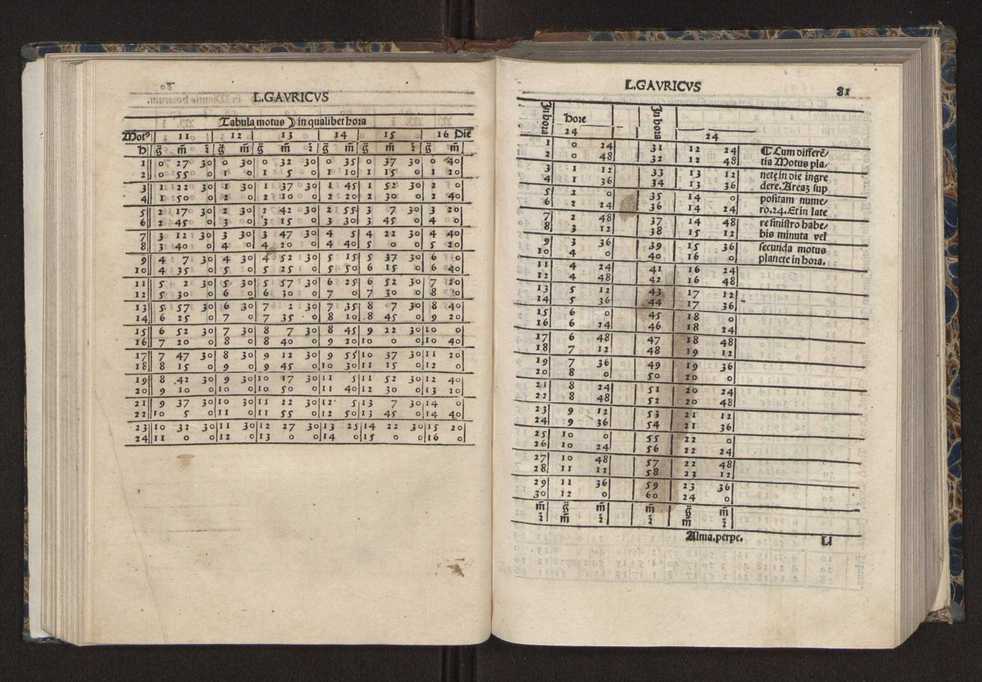 L.GAVRICVS
Tabula motus ☽ in qualibet hora
Mot⁹ 11 12 13 14 15 16 Die
h g̅ m̅ 2̅ g̅ m̅ g̅ m̅ 2̅ g̅ m̅ g̅ m̅ 2̅ g̅ m̅
1 0 27 30 0 30 0 32 30 0 35 0 37 30 0 40
2 0 55 0 1 0 1 5 0 1 10 1 15 0 1 20
3 1 22 30 1 30 1 37 30 1 45 1 52 30 2 0
4 1 50 0 2 0 2 10 0 2 20 2 30 0 2 40
5 2 17 30 2 30 2 42 30 2 55 3 7 30 3 20
6 2 45 0 3 0 3 15 0 3 30 3 45 0 4 0
7 3 12 30 3 30 3 47 30 4 5 4 22 30 4 40
8 3 40 0 4 0 4 20 0 4 40 5 0 0 5 20
9 4 7 30 4 30 4 52 30 5 15 5 37 30 6 0
10 4 35 0 5 0 5 25 0 5 50 6 15 0 6 40
11 5 2 30 5 30 5 57 30 6 25 6 52 30 7 20
12 5 30 0 6 0 6 30 0 7 0 7 30 0 8 0
13 5 57 30 6 30 7 2 30 7 35 8 7 30 8 40
14 6 25 0 7 0 7 35 0 8 10 8 45 0 9 20
15 6 52 30 7 30 8 7 30 8 45 9 22 30 10 0
16 7 20 0 8 0 8 40 0 9 20 10 0 0 10 40
17 7 47 30 8 30 9 12 30 9 55 10 37 30 11 20
18 8 15 0 9 0 9 45 0 10 30 11 15 0 12 0
19 8 42 30 9 30 10 17 30 11 5 11 52 30 12 40
20 9 10 0 10 0 10 50 0 11 40 12 30 0 13 20
21 9 37 30 10 30 11 22 30 12 15 13 7 30 14 0
22 10 5 0 11 0 11 55 0 12 50 13 45 0 14 40
23 10 32 30 11 30 12 27 30 13 25 14 22 30 15 20
24 11 0 0 12 0 13 0 0 14 0 15 0 0 16 0
L.GAVRICVS 81
In hora Hore 24 In hora 24
1 0 24 31 12 24
2 0 48 32 12 48
3 1 12 33 13 12
4 1 36 34 13 36
5 2 0 35 14 0
6 2 24 36 14 24
7 2 48 37 14 48
8 3 12 38 15 12
9 3 36 39 15 36
10 4 0 40 16 0
11 4 24 41 16 24
12 4 48 42 16 48
13 5 12 43 17 12
14 5 36 44 17 36
15 6 0 45 18 0
16 6 24 46 18 24
17 6 48 47 18 48
18 7 12 48 19 12
19 7 36 49 19 36
20 8 0 50 20 0
21 8 24 51 20 24
22 8 48 52 20 48
23 9 12 53 21 12
24 9 36 54 21 36
25 10 0 55 22 0
26 10 24 56 22 24
27 10 48 57 22 48
28 11 12 58 23 12
29 11 36 59 23 36
30 12 0 60 24 0
m̅ g̅ m̅ m̅ g̅ m̅
2̅ m̅ 2̅ 2̅ m̅ 2̅
¶ Cum differē/
tia Motus pla/
nete in die ingre
dere. Areaz sup
positam nume/
ro.24. Et in late
re sinistro habe/
bis minuta vel
secunda motus
planete in hora.
Alma.perpe. L